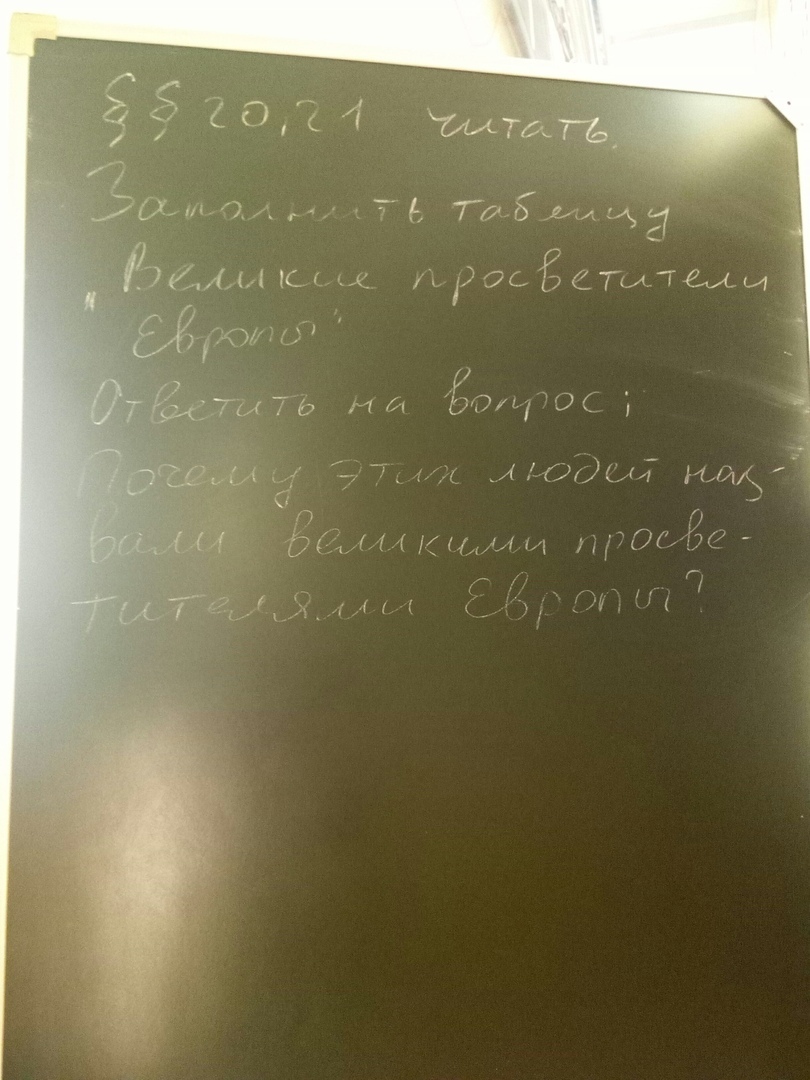 §§ 20,21 читать.
Заполнить таблицу
„Великие просветители
Европы"
Ответить на вопрос:
Почему этих людей наз-
вали великими просве-
тителями Европы?